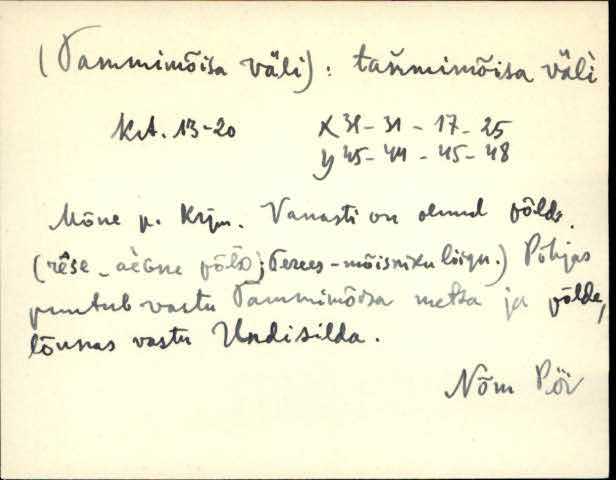 (Tammimõisa väli): tam̀mimõisa väli̬
krt. 13-20 X 31-31-17-25
y 45-44-45-48
Mõne p. krjm. Vanasti on olnud põlde.
(rêse - põld; Terees - mõisniku liign.) Põhjas
puutub vastu Tammimõisa metsa ja põlde,
lõunas vastu Undisilda.
Nõm Pöi